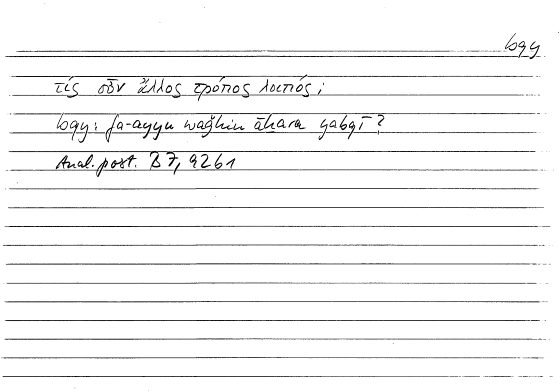 bqy
τίς οὖν ἄλλος τρόπος λοιπός;
bqy: fa-ayyu waǧhin āḫara yabqī?
Anal. post. B 7, 92b1